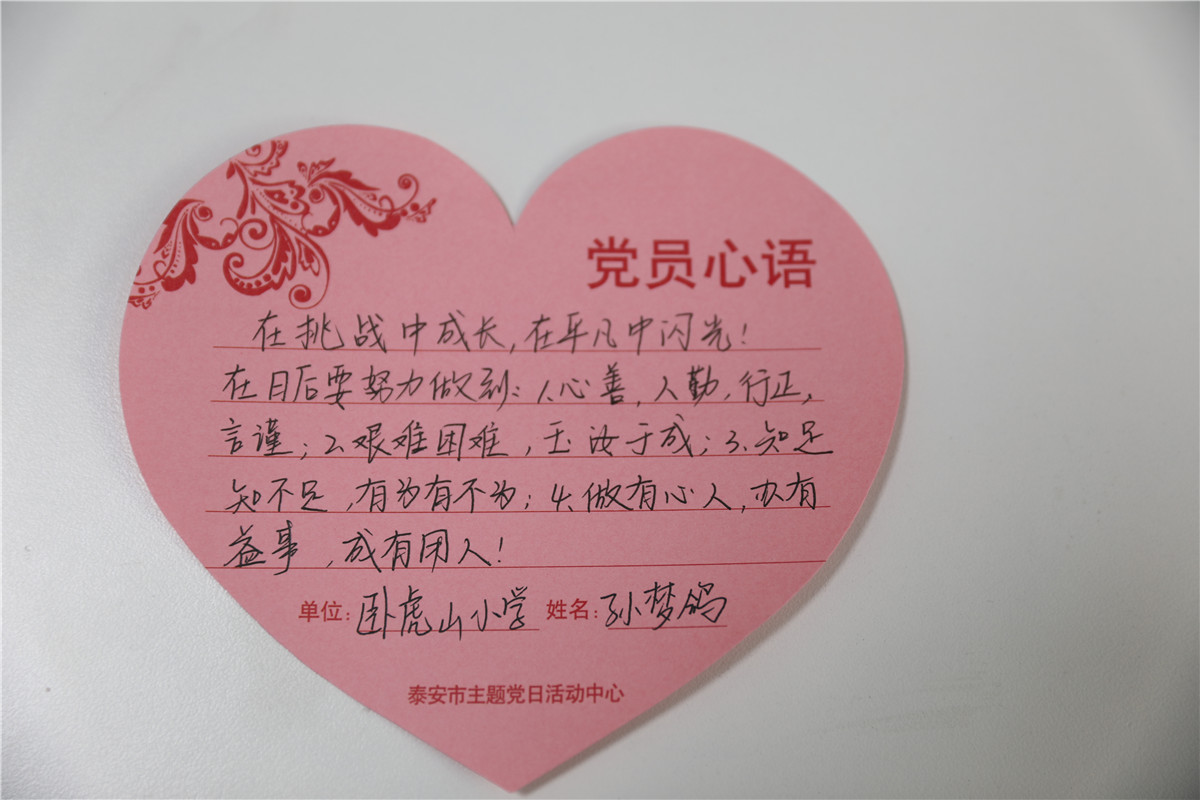 党员心语
在挑战中成长,在平凡中闪光!
在日后要努力做到:1.心善,人勤,行正,
言谨;2.艰难困难,玉汝于成;3.知足
知不足,有为有不为;4.做有心人,办有
益事,成有用人!
单位:卧虎山小学 姓名:孙梦鸽
泰安市主题党日活动中心